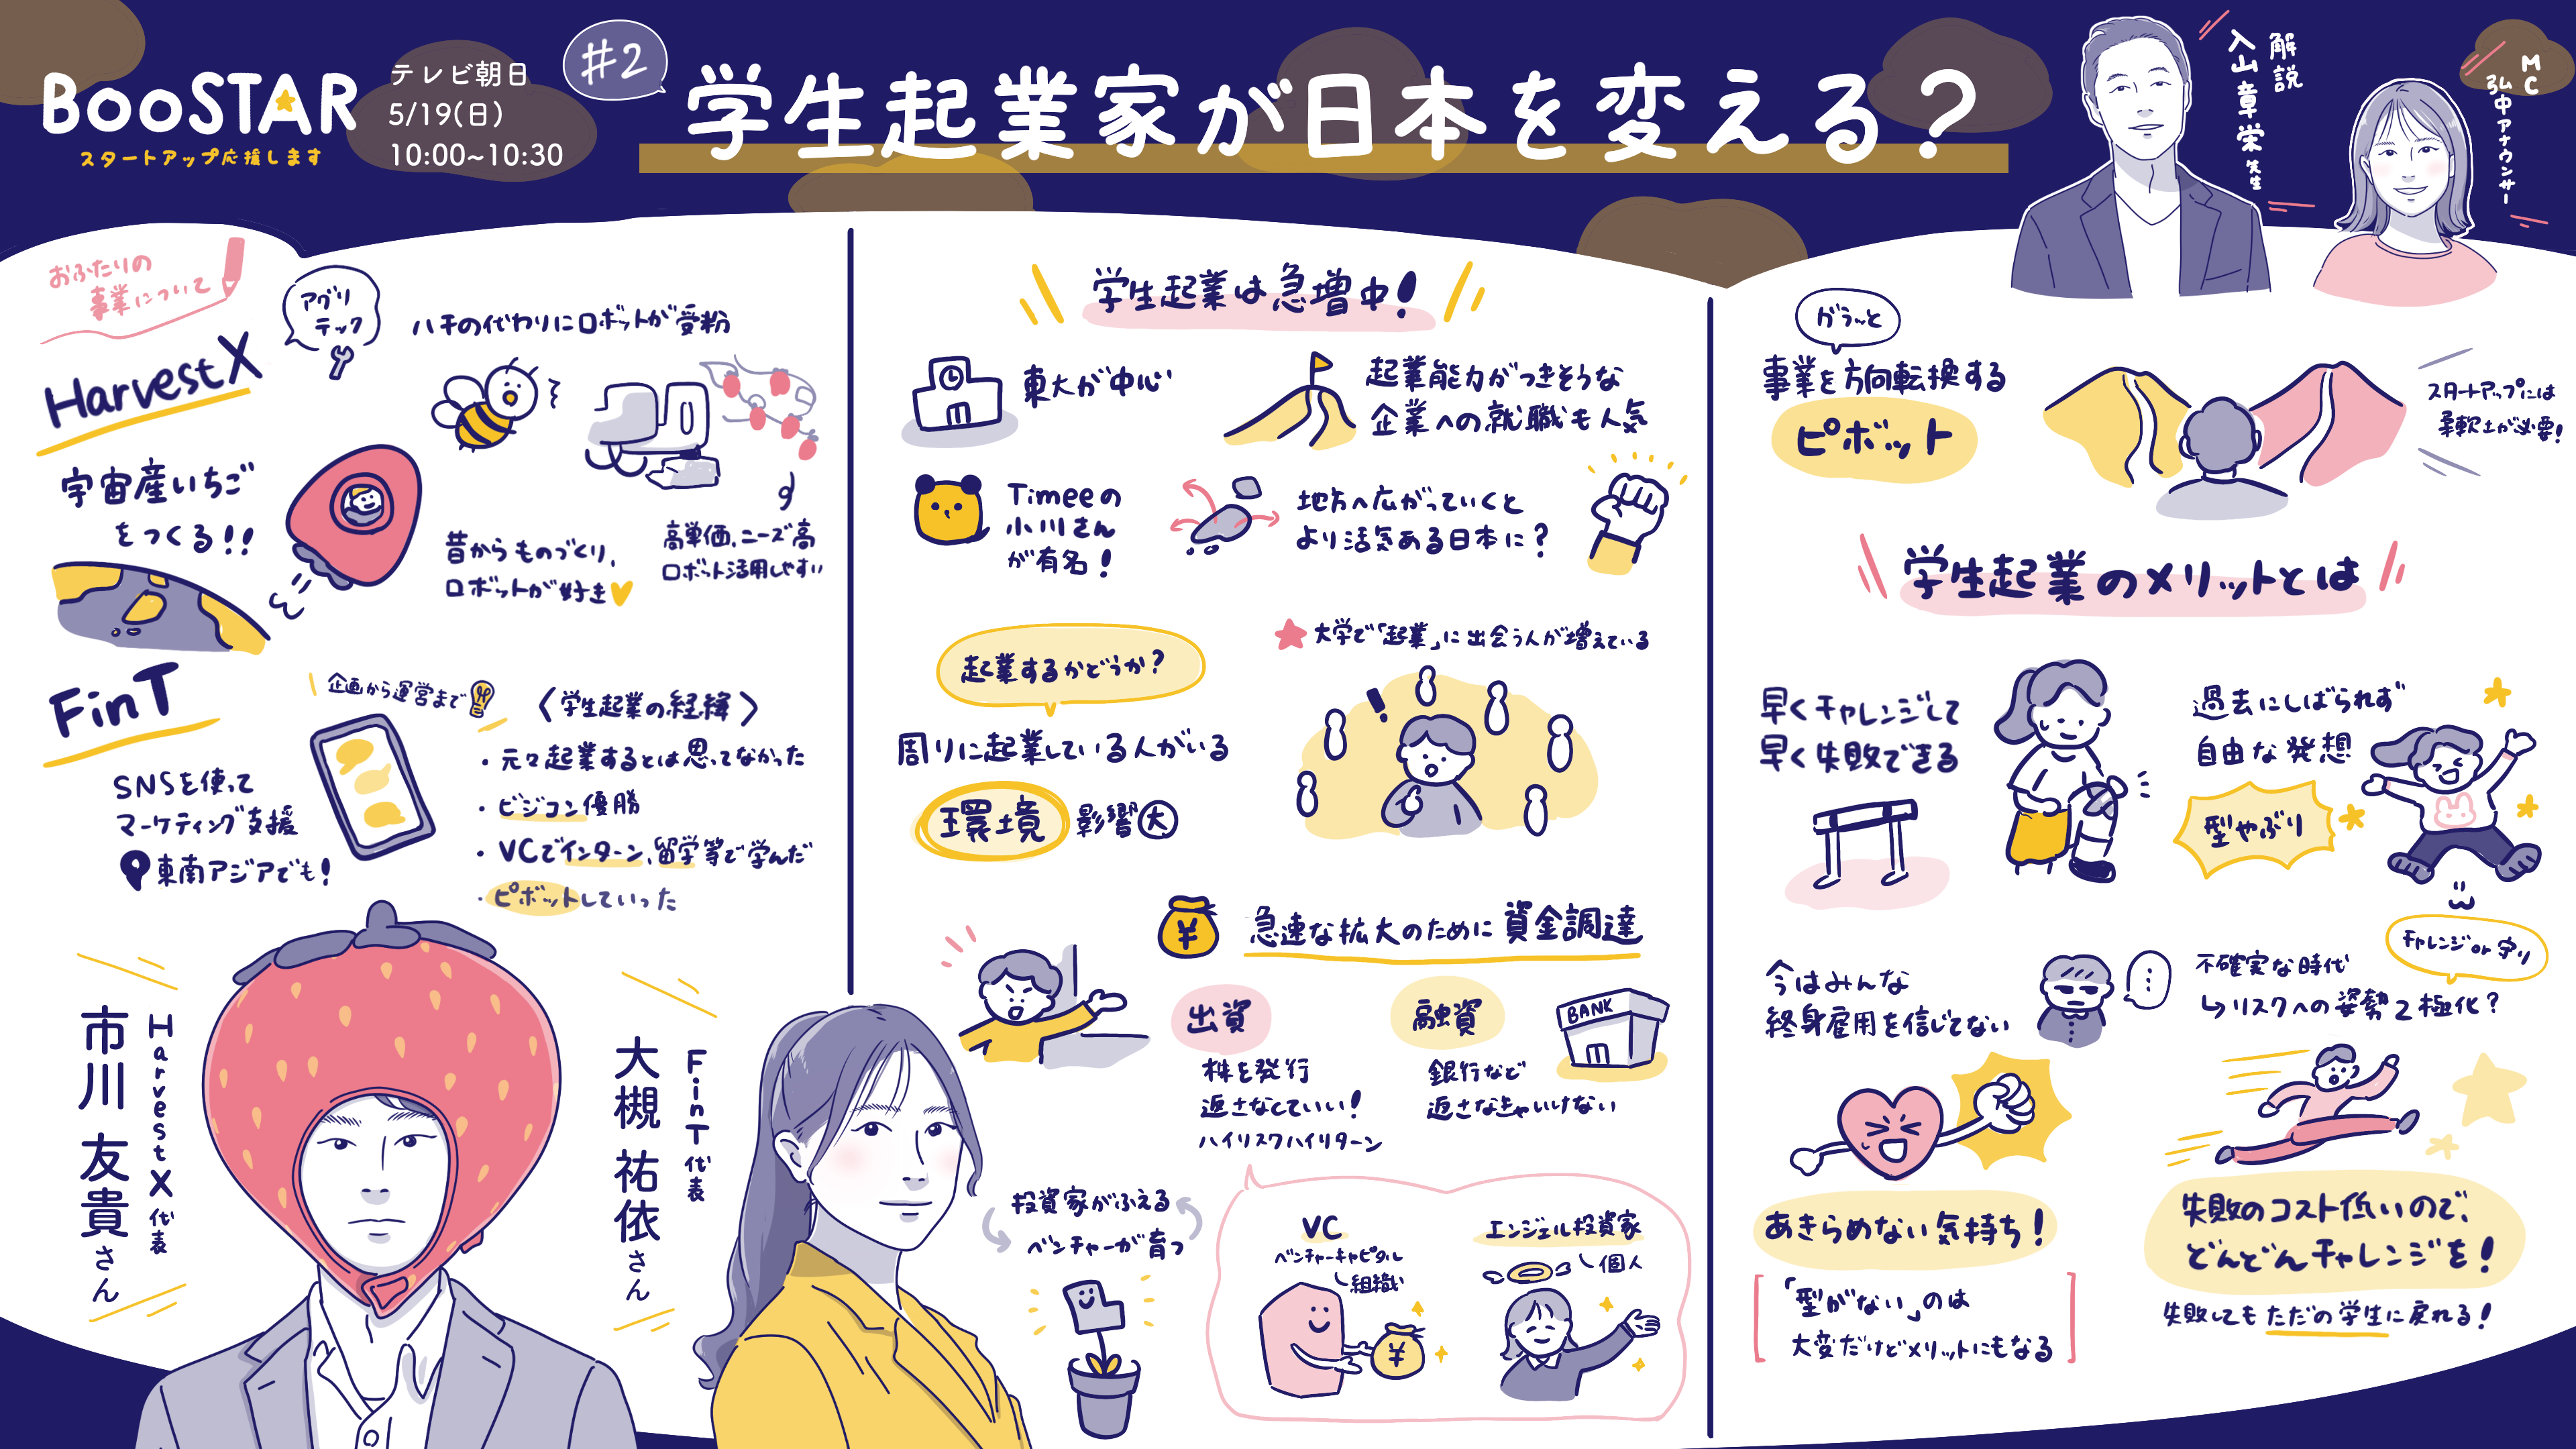 BooSTAR
スタートアップ応援します
テレビ朝日
5/19(日)
10:00~10:30
#2
学生起業家が日本を変える?
解説
入山章栄先生
MC
弘中アナウンサー
おふたりの
事業について
HarvestX
アグリ
テック
ハチの代わりにロボットが受粉
宇宙産いちご
をつくる!!
昔からものづくり、
ロボットが好き
高単価、ニーズ高
ロボット活用しやすい
FinT
SNSを使って
マーケティング支援
東南アジアでも!
企画から運営まで
〈学生起業の経緯〉
・元々起業するとは思ってなかった
・ビジコン優勝
・VCでインターン、留学等で学んだ
・ピボットしていった
HarvestX代表
市川 友貴さん
FinT代表
大槻 祐依さん
学生起業は急増中!
東大が中心
起業能力がつきそうな
企業への就職も人気
Timeeの
小川さん
が有名!
地方へ広がっていくと
より活気ある日本に?
起業するかどうか?
周りに起業している人がいる
環境 影響大
大学で「起業」に出会う人が増えている
!
¥
急速な拡大のために資金調達
出資
株を発行
返さなくていい!
ハイリスクハイリターン
融資
BANK
銀行など
返さなきゃいけない
投資家がふえる
ベンチャーが育つ
VC
ベンチャーキャピタル
組織
¥
エンジェル投資家
個人
がら~っと
事業を方向転換する
ピボット
スタートアップには
柔軟さが必要!
学生起業のメリットとは
早くチャレンジして
早く失敗できる
過去にしばられず
自由な発想
型やぶり
今はみんな
終身雇用を信じてない
…
チャレンジor守り
不確実な時代
↳リスクへの姿勢2極化?
あきらめない気持ち!
「型がない」のは
大変だけどメリットにもなる
失敗のコスト低いので、
どんどんチャレンジを!
失敗してもただの学生に戻れる!